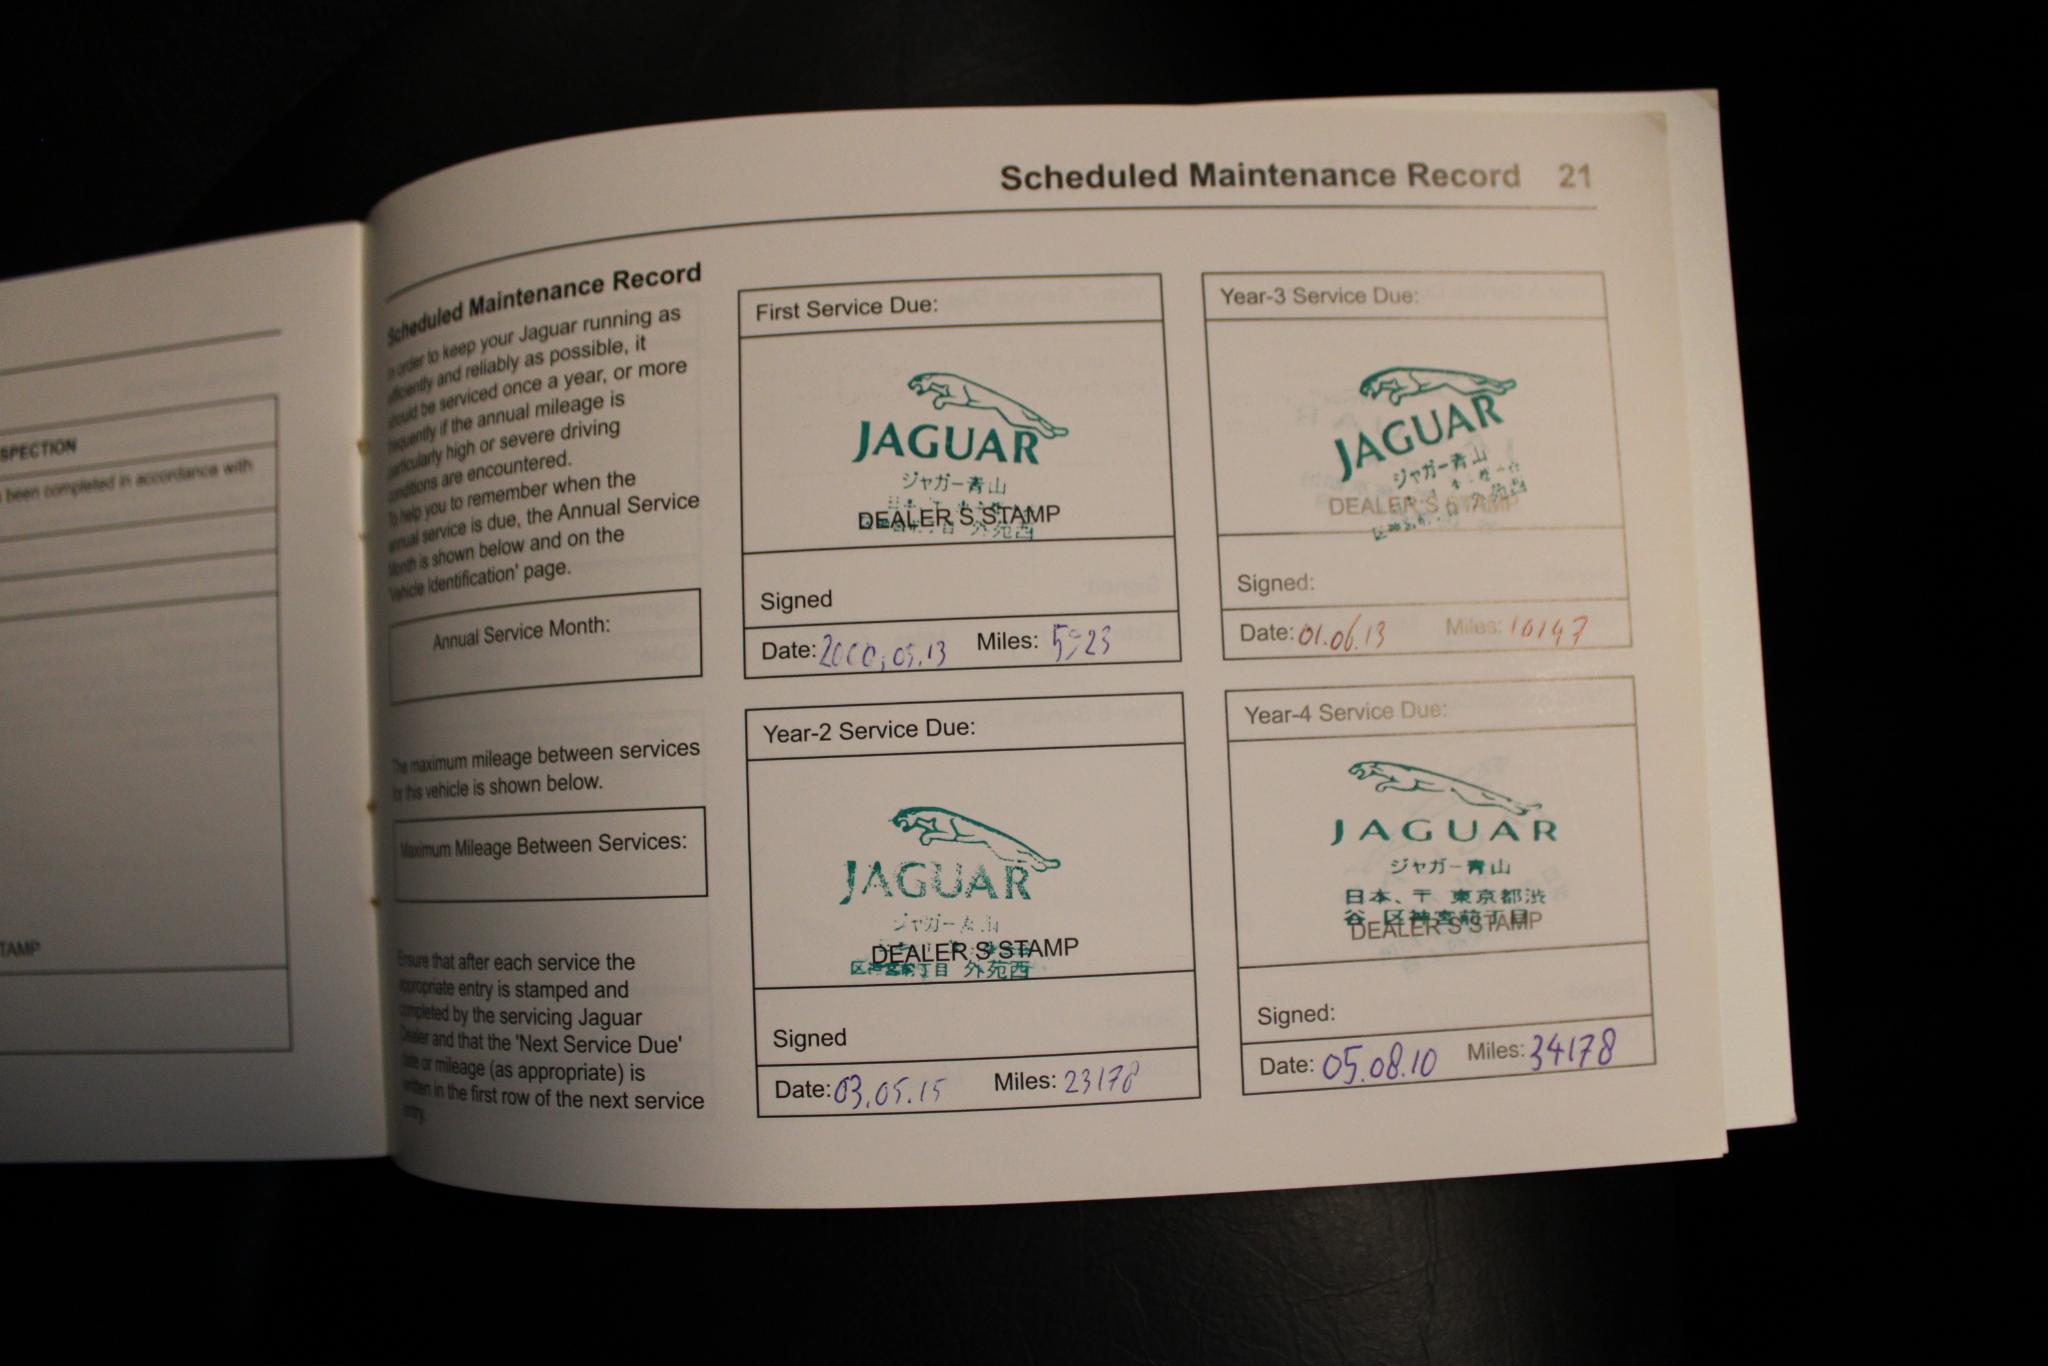 SPECTION
been completed in accordance with
TAMP
Scheduled Maintenance Record 21
Scheduled Maintenance Record
In order to keep your Jaguar running as
efficiently and reliably as possible, it
should be serviced once a year, or more
frequently if the annual mileage is
particularly high or severe driving
conditions are encountered.
To help you to remember when the
annual service is due, the Annual Service
Month is shown below and on the
'Vehicle Identification' page.
Annual Service Month:
The maximum mileage between services
for this vehicle is shown below.
Maximum Mileage Between Services:
Ensure that after each service the
appropriate entry is stamped and
completed by the servicing Jaguar
Dealer and that the 'Next Service Due'
date or mileage (as appropriate) is
written in the first row of the next service
entry.
First Service Due:
JAGUAR
ジャガー青山
DEALER S STAMP
外苑西
Signed
Date: 2000.05.13 Miles: 5923
Year-2 Service Due:
JAGUAR
ジャガー青山
DEALER S STAMP
区神宮前丁目 外苑西
Signed
Date: 03.05.15 Miles: 23178
Year-3 Service Due:
JAGUAR
ジャガー青山
DEALER S STAMP
外苑西
Signed:
Date: 01.06.13 Miles: 10147
Year-4 Service Due:
JAGUAR
ジャガー青山
日本、〒 東京都渋
谷 区神宮前丁目
DEALER S STAMP
Signed:
Date: 05.08.10 Miles: 34178